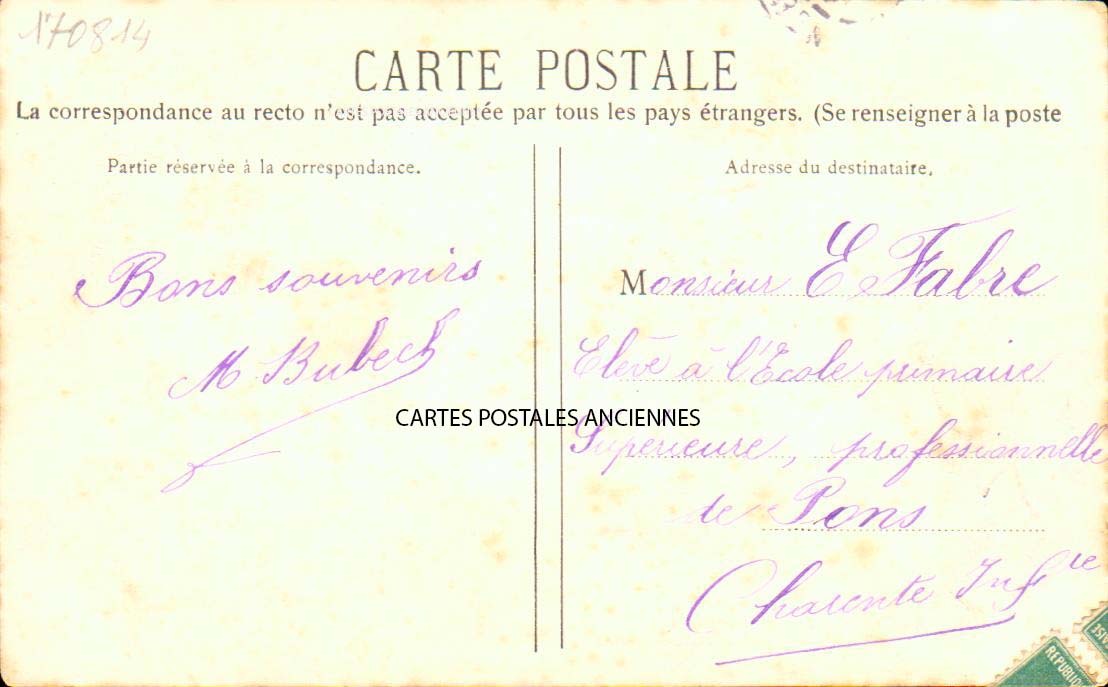 170814
CARTE POSTALE
La correspondance au recto n'est pas acceptée par tous les pays étrangers. (Se renseigner à la poste
Partie réservée à la correspondance.
Bons souvenirs
M Bubech
CARTES POSTALES ANCIENNES
Adresse du destinataire.
Monsieur E Fabre
Elève à l'Ecole primaire
Supérieure, professionnelle
de Pons
Charente Infre
REPUBLI
AISE